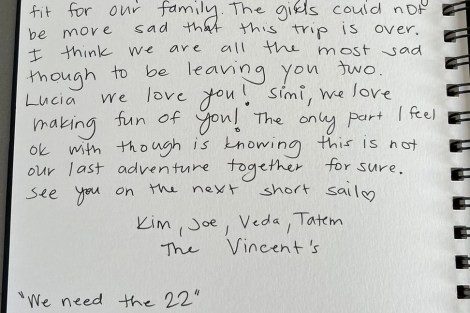 fit for our family. The girls could not
be more sad that this trip is over.
I think we are all the most sad
though to be leaving you two.
Lucia we love you! Simi, we love
making fun of you! The only part I feel
ok with though is knowing this is not
our last adventure together for sure.
See you on the next short sail♡
Kim, Joe, Veda, Tatem
The Vincent's
"We need the 22"